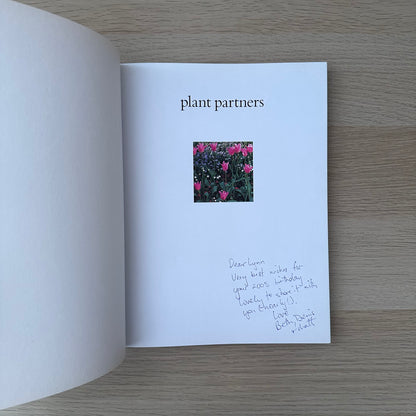 plant partners
Dear Lynn
Very best wishes for
your 2005 birthday
Lovely to share it with
you
Love
Beth,